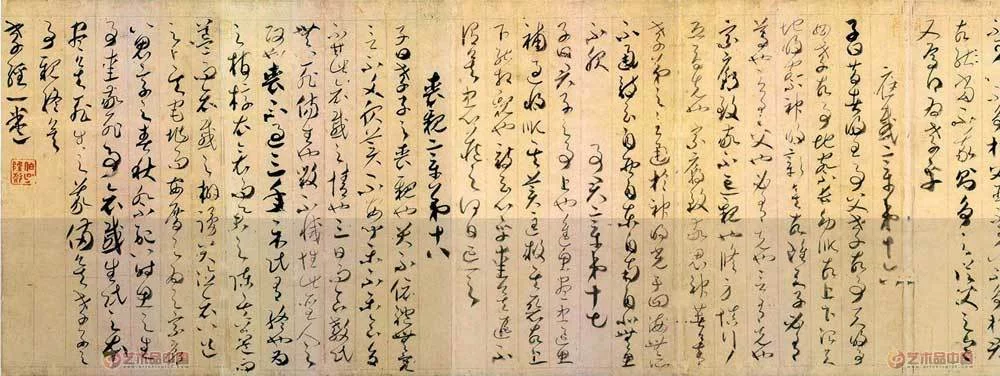 又焉得為孝乎
應感章第十六
子曰昔者明王事父孝故事天明事
母孝故事地察長幼順故上下治天
地明察神明彰矣故雖天子必有
尊也言有父也必有先也言有兄也
宗廟致敬不忘親也修身慎行
恐辱先也宗廟致敬鬼神著矣
孝弟之至通於神明光于四海無所
不通詩云自西自東自南自北無思
不服
事君章第十七
子曰君子之事上也進思盡忠退思
補過將順其美匡救其惡故上
下能相親也詩云心乎愛矣遐不
謂矣忠心藏之何日忘之
喪親章第十八
子曰孝子之喪親也哭不偯禮無容
言不文服美不安聞樂不樂食旨
不甘此哀戚之情也三日而食教民
無以死傷生也毀不滅性此聖人之
政也喪不過三年示民有終也為
之棺椁衣衾而舉之陳其簠簋而
哀戚之擗踊哭泣哀以送
之卜其宅兆而安厝之為之宗廟
以鬼享之春秋祭祀以時思之生
事愛敬死事哀戚生民之本
盡矣死生之義備矣孝子之
事親終矣
孝經一卷
艺术品中国
艺术品中国